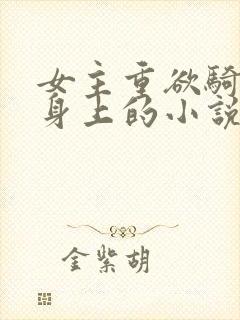 女主重欲騎
身上的小説
金紫胡